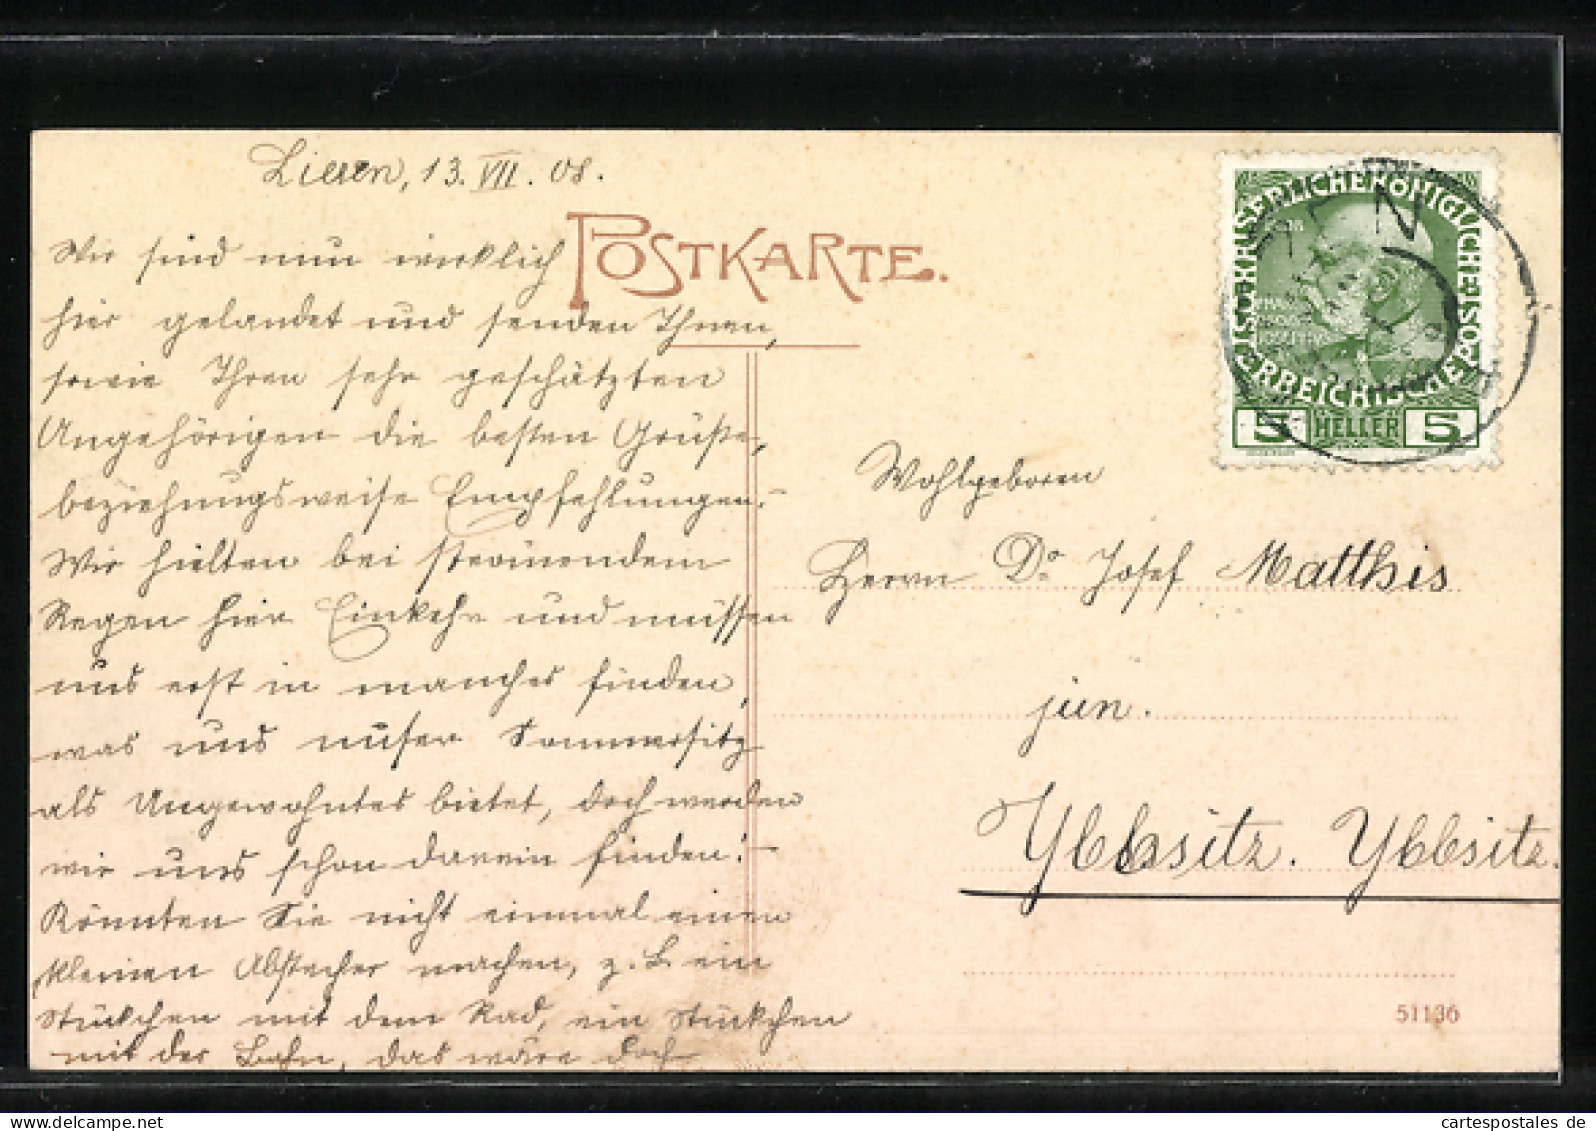 Liezen, 13. VII. 08.
POSTKARTE.
Wir sind nun wirklich
hier gelandet und senden Ihnen,
sowie Ihren sehr geschätzten
Angehörigen die besten Grüße,
beziehungsweise Empfehlungen.–
Wir hielten bei strömendem
Regen hier Einkehr und müssen
uns erst in manches finden,
was uns unser Sommersitz
als Ungewohntes bietet, doch werden
wir uns schon darein finden.–
Könnten Sie nicht einmal einen
kleinen Abstecher machen, z. B. ein
Stückchen mit dem Rad, ein Stückchen
mit der Bahn, das wäre doch
KAISERLICHE KÖNIGLICHE
ÖSTERREICHISCHE POST
5 HELLER 5
Wohlgeboren
Herrn Dr. Josef Matthis
jun.
Ybbsitz. Ybbsitz.
51136
cartespostales de